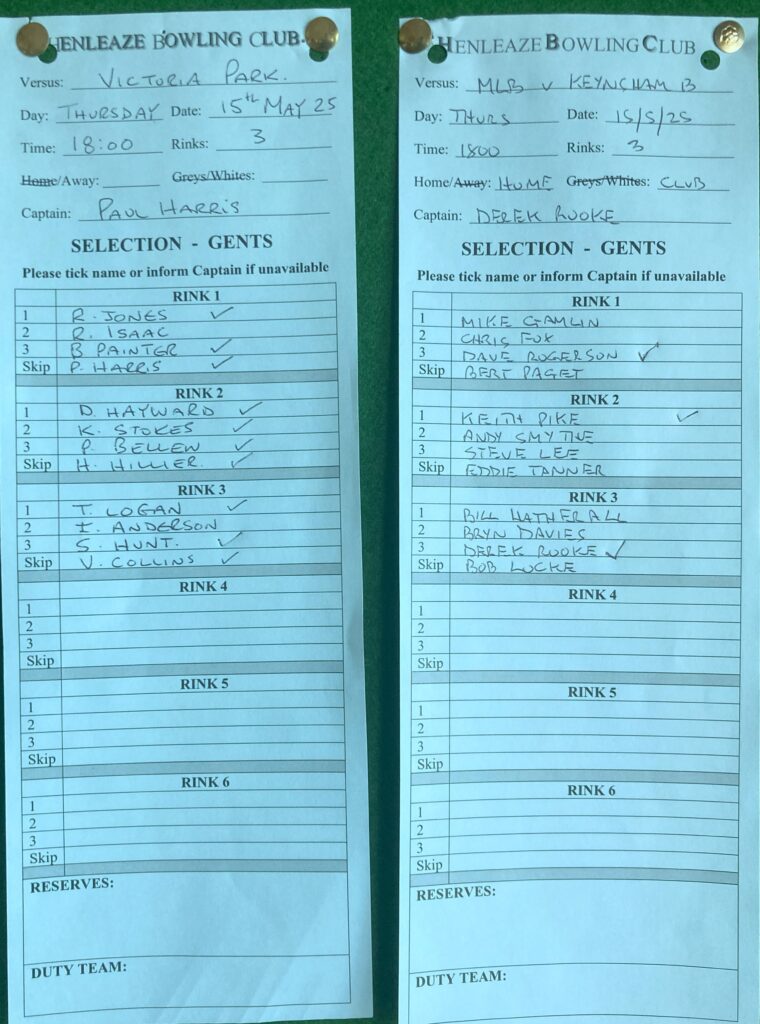 HENLEAZE BOWLING CLUB
Versus: VICTORIA PARK.
Day: THURSDAY Date: 15th MAY 25
Time: 18:00 Rinks: 3
Home/Away: Greys/Whites:
Captain: PAUL HARRIS
SELECTION - GENTS
Please tick name or inform Captain if unavailable
RINK 1
1 R. JONES ✓
2 R. ISAAC
3 B PAINTER ✓
Skip P. HARRIS ✓
RINK 2
1 D. HAYWARD ✓
2 K. STOKES ✓
3 P. BELLEW ✓
Skip H. HILLIER. ✓
RINK 3
1 T. LOGAN ✓
2 I. ANDERSON
3 S. HUNT. ✓
Skip V. COLLINS ✓
RINK 4
1
2
3
Skip
RINK 5
1
2
3
Skip
RINK 6
1
2
3
Skip
RESERVES:
DUTY TEAM:
HENLEAZE BOWLING CLUB
Versus: MLB v KEYNSHAM B
Day: THURS Date: 15/5/25
Time: 1800 Rinks: 3
Home/Away: HOME Greys/Whites: CLUB
Captain: DEREK ROOKE
SELECTION - GENTS
Please tick name or inform Captain if unavailable
RINK 1
1 MIKE GAMLIN
2 CHRIS FOX
3 DAVE ROGERSON ✓
Skip BERT PAGET
RINK 2
1 KEITH PIKE ✓
2 ANDY SMYTHE
3 STEVE LEE
Skip EDDIE TANNER
RINK 3
1 BILL HATHERALL
2 BRYN DAVIES
3 DEREK ROOKE ✓
Skip BOB LOCKE
RINK 4
1
2
3
Skip
RINK 5
1
2
3
Skip
RINK 6
1
2
3
Skip
RESERVES:
DUTY TEAM: